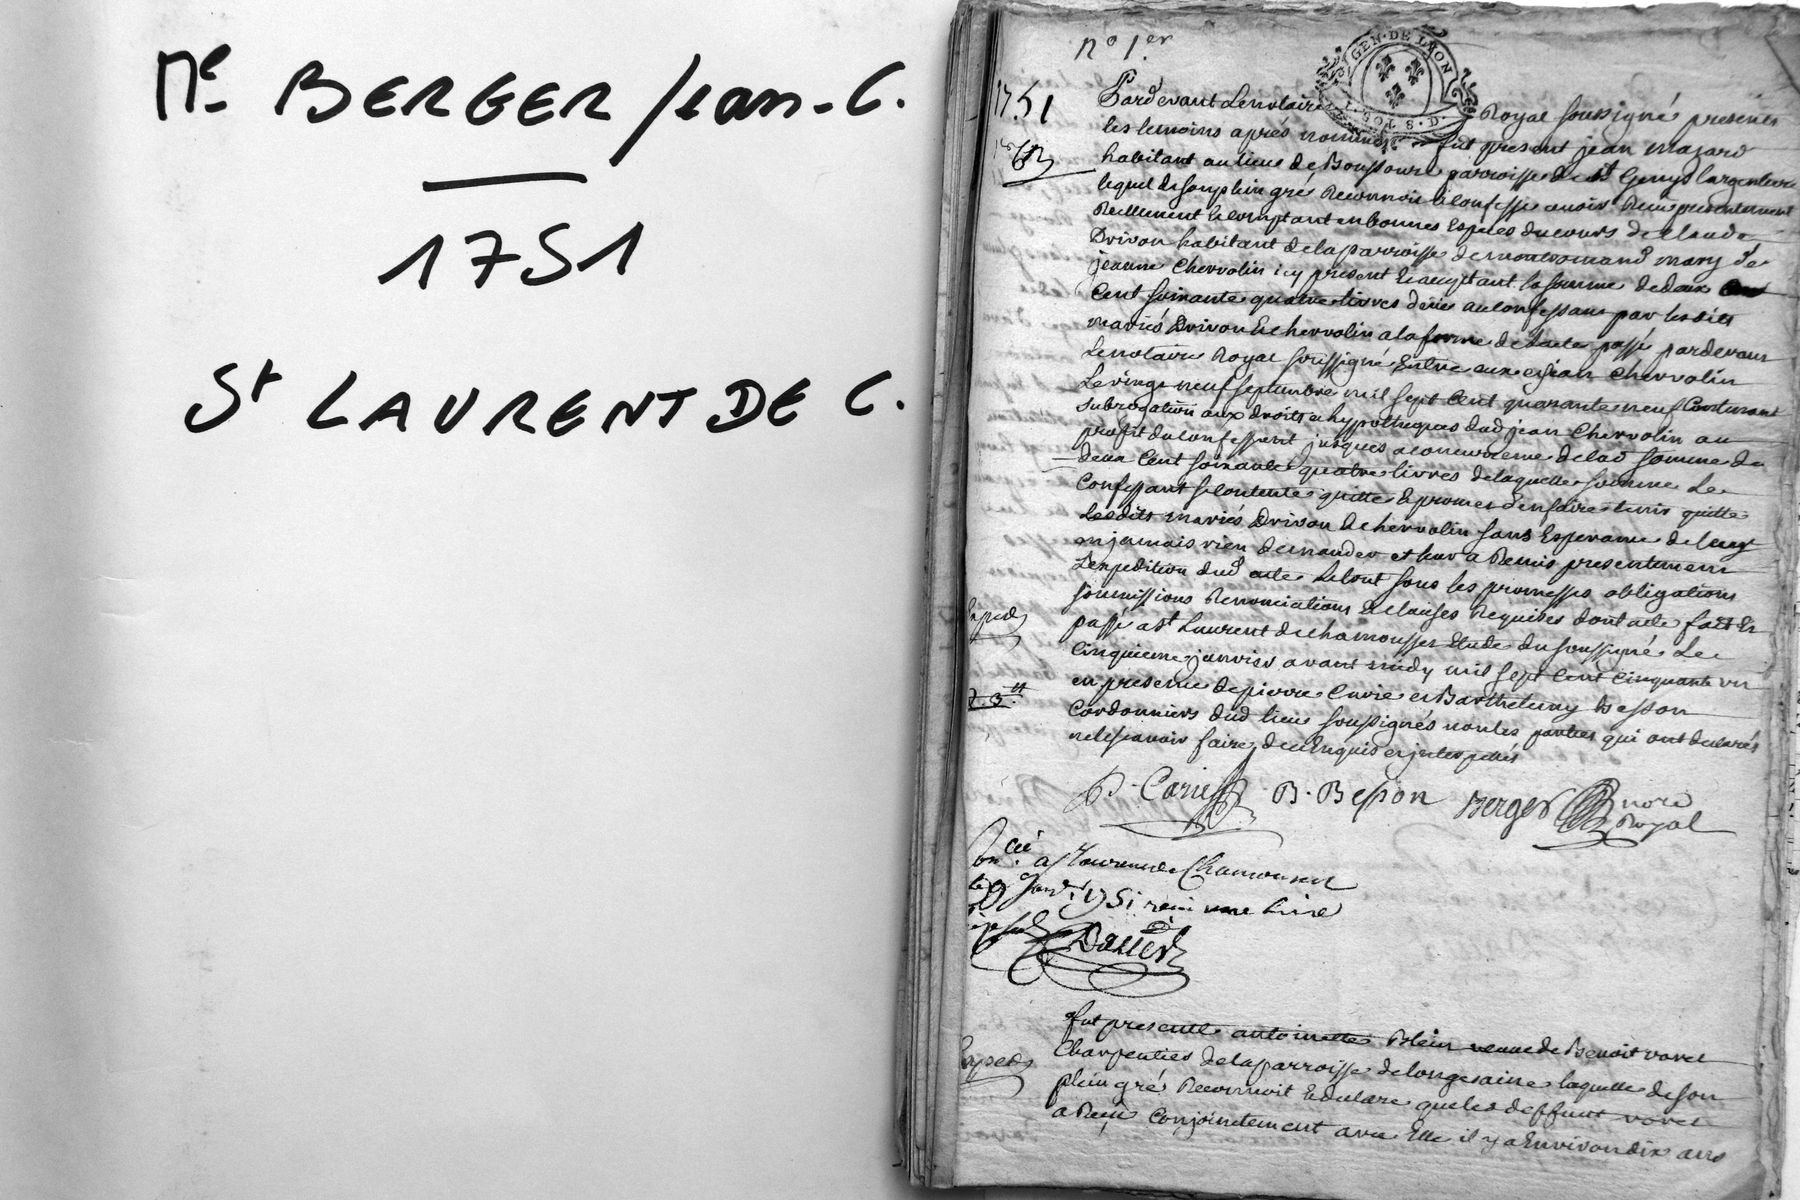 Me BERGER Jean-C.
1751
St LAURENT DE C.
no 1er
GEN. DE LYON
1751
Pardevant Le notaire Royal soussigné presents
les temoins aprés nommés fut present jean mazard
habitant au lieu de Boussoure parroisse de st Genys largentiere
lequel de son plein gré Reconnoit & Confesse avoir Reçu presentement
Reellement & comptant en bonnes Especes du cours de Claude
Drivon habitant de la parroisse de montromand mary de
jeanne Chervolin icy present & acceptant la somme de deux
Cent soixante quatre livres deüe au Confessant par lesdits
mariés Drivon & Chervolin a la forme de lacte passé pardevant
Le notaire Royal soussigné Entre eux et jean Chervolin
Le vingt neuf septembre mil sept Cent quarante neuf Contenant
subrogation aux droits et hypotheques dud jean Chervolin au
profit du Confessant jusques a concurrence de lad somme de
deux Cent soixante quatre livres de laquelle somme Le
Confessant se Contente quitte & promet d'en faire tenir quitte
Lesdits mariés Drivon & Chervolin sans Esperance de leur
en jamais rien demander et leur a Remis presentement
L'expedition dud acte Le tout sous les promesses obligations
soumissions Renonciations & Clauses Requises dont acte fait Et
passé a st Laurent de chamousset Etude du soussigné Le
Cinquieme janvier avant midy mil sept Cent Cinquante un
en presence de pierre Carrie et Barthelemy Besson
Cordonniers dud lieu soussignés non les parties qui ont declarés
ne le sçavoir faire de ce Enquis et interpellés
Exped
P. Carrie B. Besson Berger nore Royal
a st Laurent de Chamousset
le 9 janvr 1751 reçu une livre
Exped
fut presente antoinette Blein veuve de Benoit voret
Charpentier de la parroisse de longesaine laquelle de son
plein gré Reconnoit & declare que led deffunt voret
a Reçu Conjointement avec Elle il y a Environ dix ans